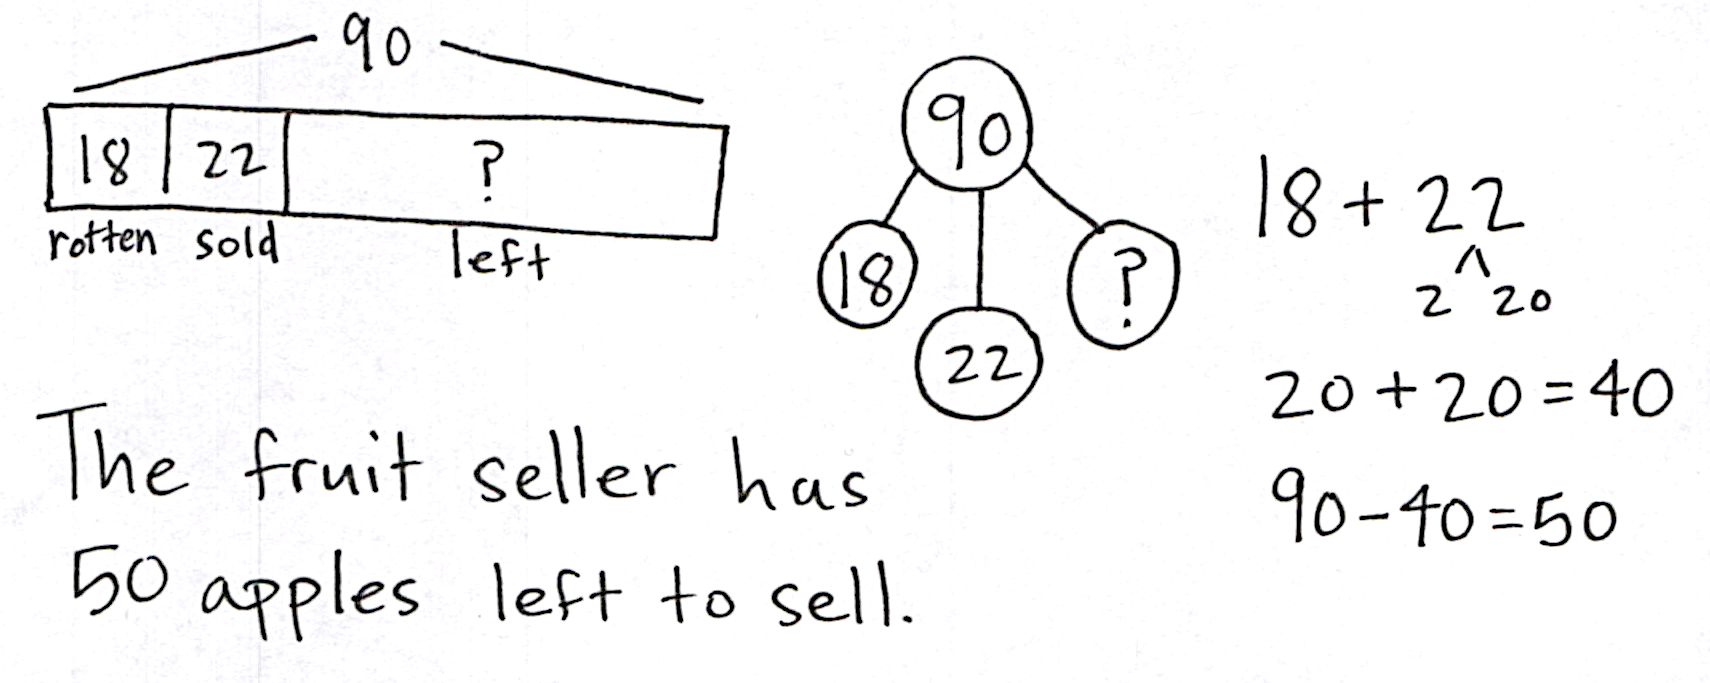 90
18 22 ?
rotten sold left
90
18 22 ?
18 + 22
2 20
20 + 20 = 40
90 - 40 = 50
The fruit seller has
50 apples left to sell.